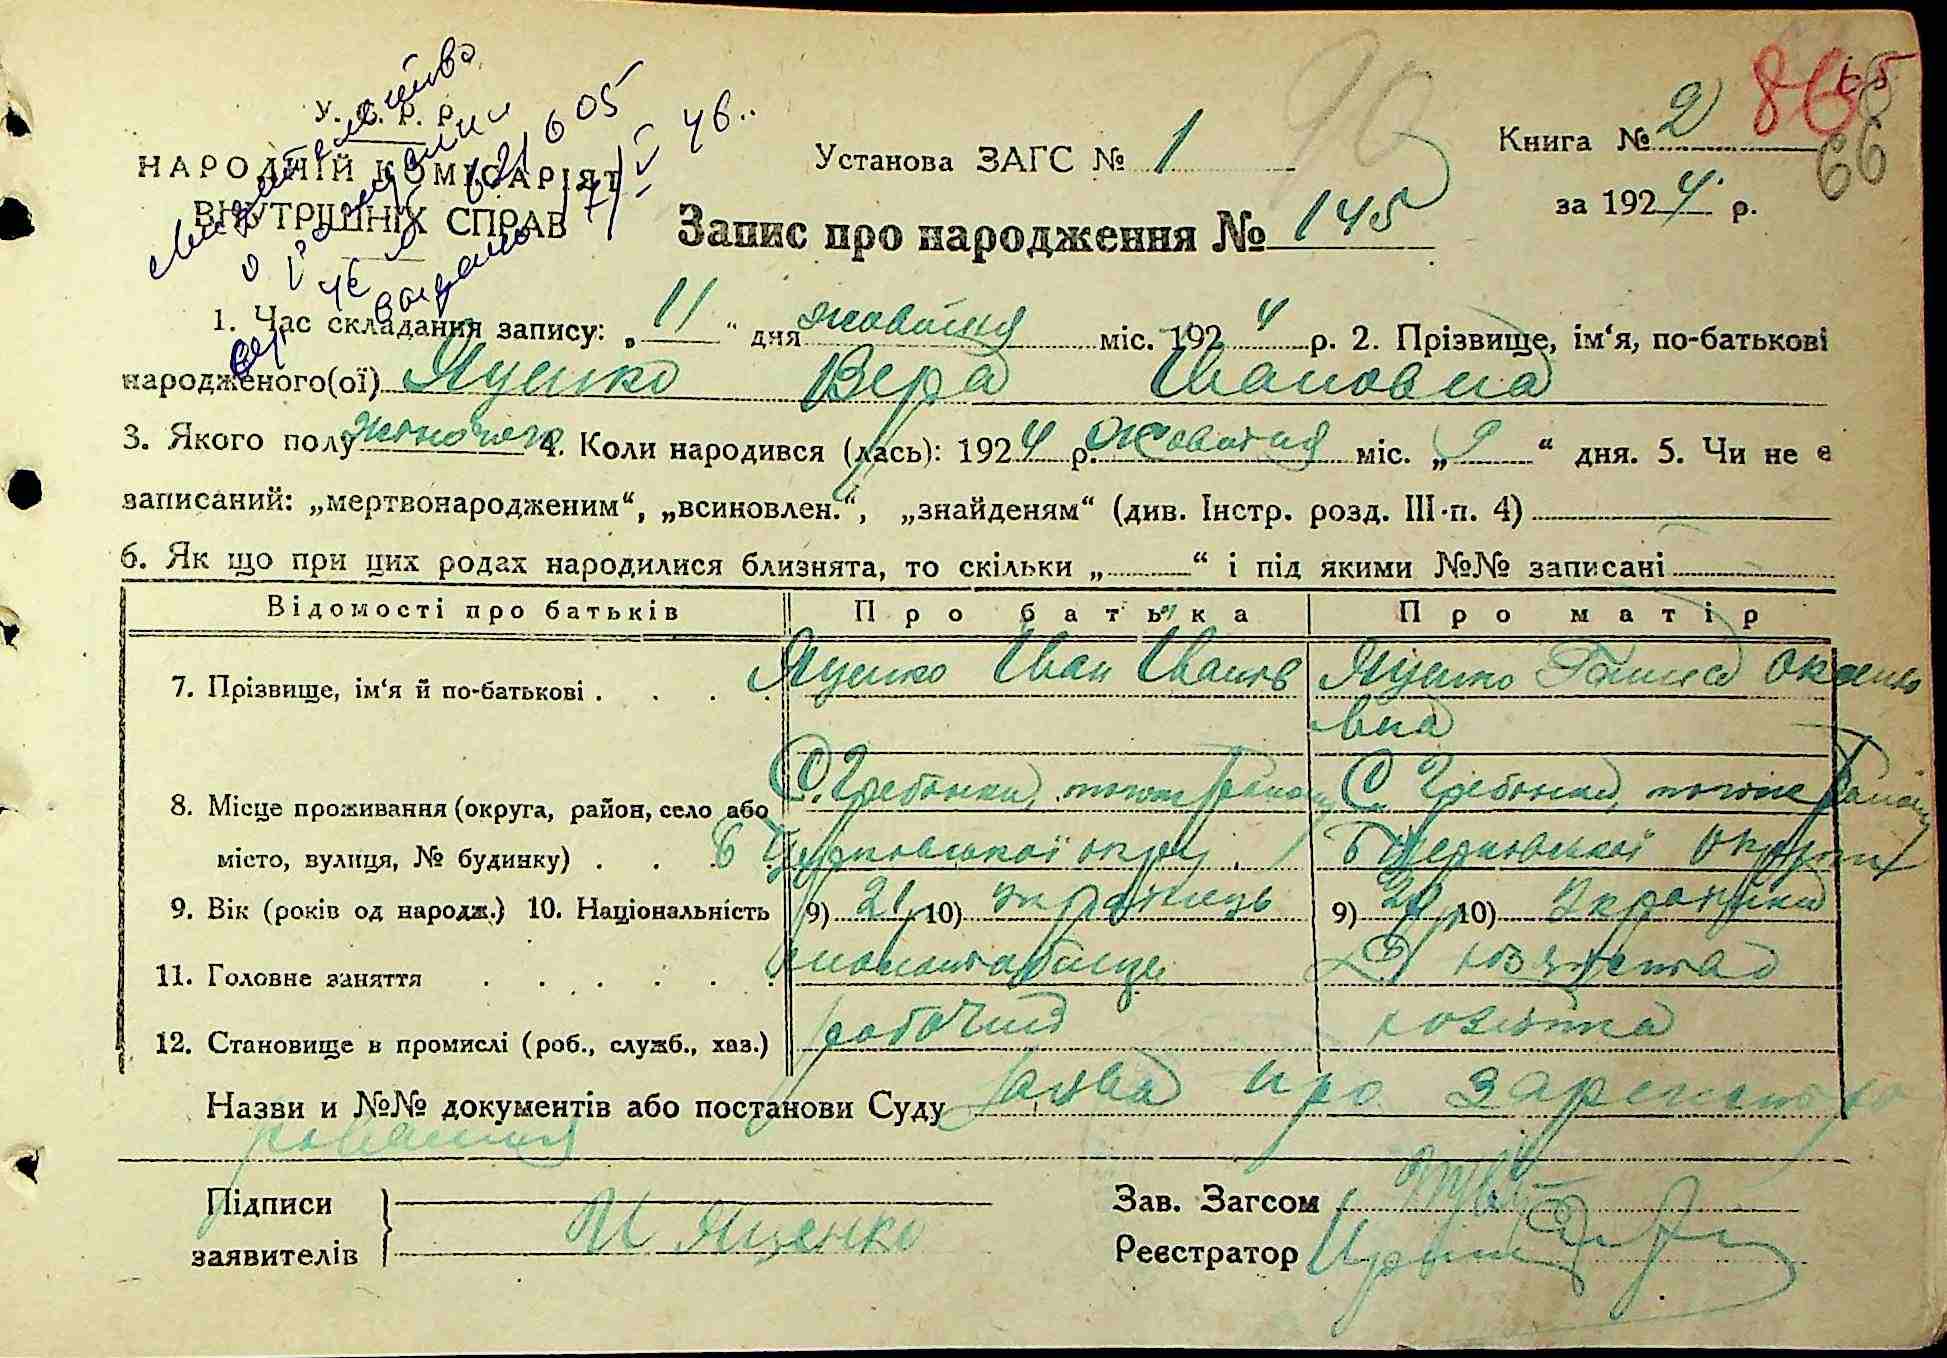 У. С. Р. Р.
НАРОДНІЙ КОМІСАРІЯТ
ВНУТРІШНІХ СПРАВ
Свидетельство
о рождении
621605
выдано 17/IV 46
Установа ЗАГС № 1
Книга № 2
86
65
66
90
за 1924 р.
Запис про народження № 145
1. Час складання запису: „ 11 “ дня жовтня міс. 1924 р. 2. Прізвище, ім‘я, по-батькові
народженого(ої) Яценко Вера Івановна
3. Якого полу жіночого 4. Коли народився (лась): 1924 р. жовтня міс. „ 9 “ дня. 5. Чи не є
записаний: „мертвонародженим“, „всиновлен.“, „знайденям“ (див. Інстр. розд. III·п. 4)
6. Як що при цих родах народилися близнята, то скільки „ “ і під якими №№ записані
Відомості про батьків Про батька Про матір
7. Прізвище, ім‘я й по-батькові . . . . Яценко Іван Іванов Яценко Ганна
вна
8. Місце проживання (округа, район, село або С. Гребінки, району С. Гребінки, району
місто, вулиця, № будинку) . . . Б Церковської округи Б Церковської округи
9. Вік (років од народж.) 10. Національність 9) 21 10) українець 9) 20 10) Українка
11. Головне заняття . . . . . .
12. Становище в промислі (роб., служб., хаз.) робочий хозяйка
Назви и №№ документів або постанови Суду заява про зарегистро
рованния
Підписи
заявителів
И Яценко
Зав. Загсом
Реєстратор